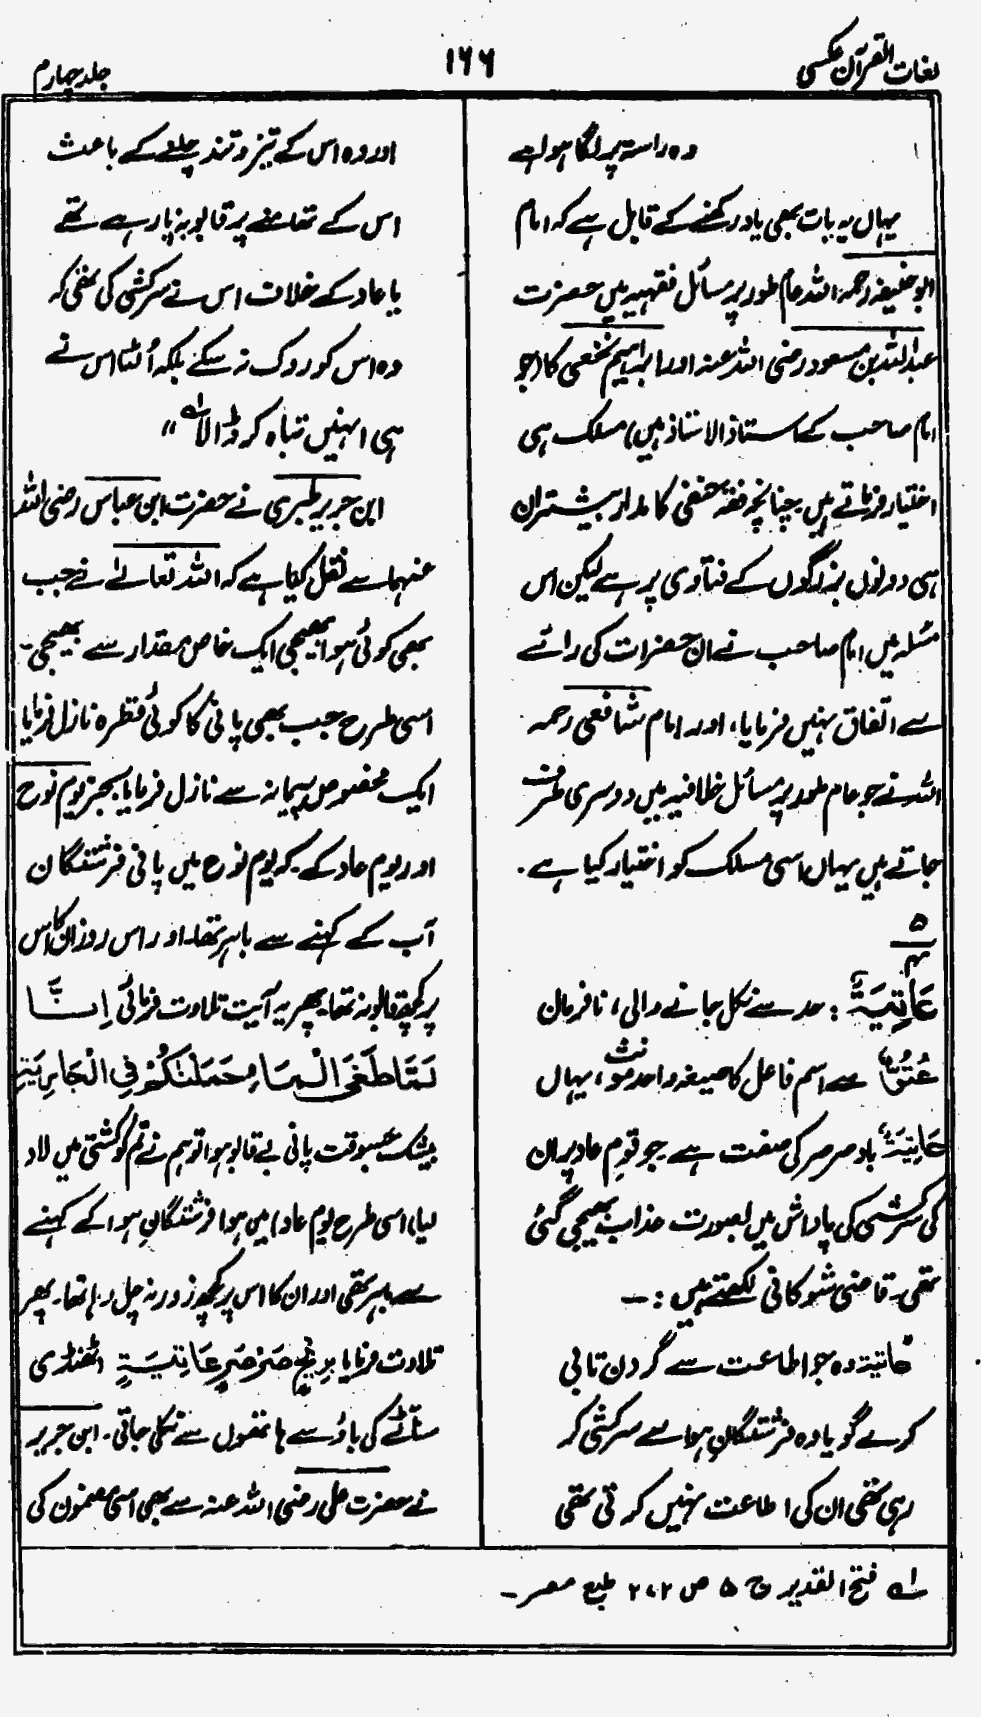 لغات القرآن عکسی
۱۶۶
جلد چہارم
وہ راستہ پر لگا ہوا ہے
یہاں یہ بات بھی یاد رکھنے کے قابل ہے کہ امام
ابوحنیفہ رحمہ اللہ عام طور پر مسائل فقہیہ میں حضرت
عبداللہ بن مسعود رضی اللہ عنہ اور ابراہیم نخعی کا (جو
امام صاحب کے استاذ الاستاذ ہیں) مسلک ہی
اختیار فرماتے ہیں، چنانچہ فقہ حنفی کا مدار بیشتر ان
ہی دونوں بزرگوں کے فتاوی پر ہے لیکن اس
مسئلہ میں امام صاحب نے ان حضرات کی رائے
سے اتفاق نہیں فرمایا، اور امام شافعی رحمہ
اللہ نے جو عام طور پر مسائل خلافیہ میں دوسری طرف
جاتے ہیں یہاں اسی مسلک کو اختیار کیا ہے۔
۵
۴
عَاتِیَۃٍ : حد سے نکل جانے والی، نافرمان
عُتُوٌّ سے اسم فاعل کا صیغہ واحد مؤنث، یہاں
عَاتِیَۃٍ باد صرصر کی صفت ہے جو قومِ عاد پر ان
کی سرکشی کی پاداش میں بصورت عذاب بھیجی گئی
تھی۔ قاضی شوکانی لکھتے ہیں :۔
عاتیۃ وہ جو اطاعت سے گردن تابی
کرے گویا وہ فرشتگانِ ہوا سے سرکشی کر
رہی تھی ان کی اطاعت نہیں کرتی تھی
اور وہ اس کے تیز و تند چلنے کے باعث
اس کے تھامنے پر قابو نہ پا رہے تھے
یا عاد کے خلاف اس نے سرکشی کی تھی کہ
وہ اس کو روک نہ سکے بلکہ اُلٹا اس نے
ہی انہیں تباہ کر ڈالا لہ "
ابن جریر طبری نے حضرت ابن عباس رضی اللہ
عنہما سے نقل کیا ہے کہ اللہ تعالےٰ نے جب
بھی کوئی ہوا بھیجی ایک خاص مقدار سے بھیجی۔
اسی طرح جب بھی پانی کا کوئی قطرہ نازل فرمایا
ایک مخصوص پیمانہ سے نازل فرمایا بجز یوم نوح
اور یوم عاد کے۔ کہ یوم نوح میں پانی فرشتگان
آب کے کہنے سے باہر تھا۔ اور اس روز ان کا اس
پر کچھ قابو نہ تھا۔ پھر یہ آیت تلاوت فرمائی اِنَّا
لَمَّا طَغَی الْمَاءُ حَمَلْنٰکُمْ فِی الْجَارِیَۃِ
بیشک جس وقت پانی بے قابو ہوا تو ہم نے تم کو کشتی میں لاد
لیا) اسی طرح یوم عاد میں ہوا فرشتگانِ ہوا کے کہنے
سے باہر تھی اور ان کا اس پر کچھ زور نہ چل رہا تھا۔ پھر
تلاوت فرمایا بِرِیْحٍ صَرْصَرٍ عَاتِیَۃٍ (ٹھنڈی
سنّاٹے کی باؤ سے ہاتھوں سے نکلی جاتی۔ ابن جریر
نے حضرت علی رضی اللہ عنہ سے بھی اسی مضمون کی
لہ فتح القدیر ج ۵ ص ۲۷۲ طبع مصر۔